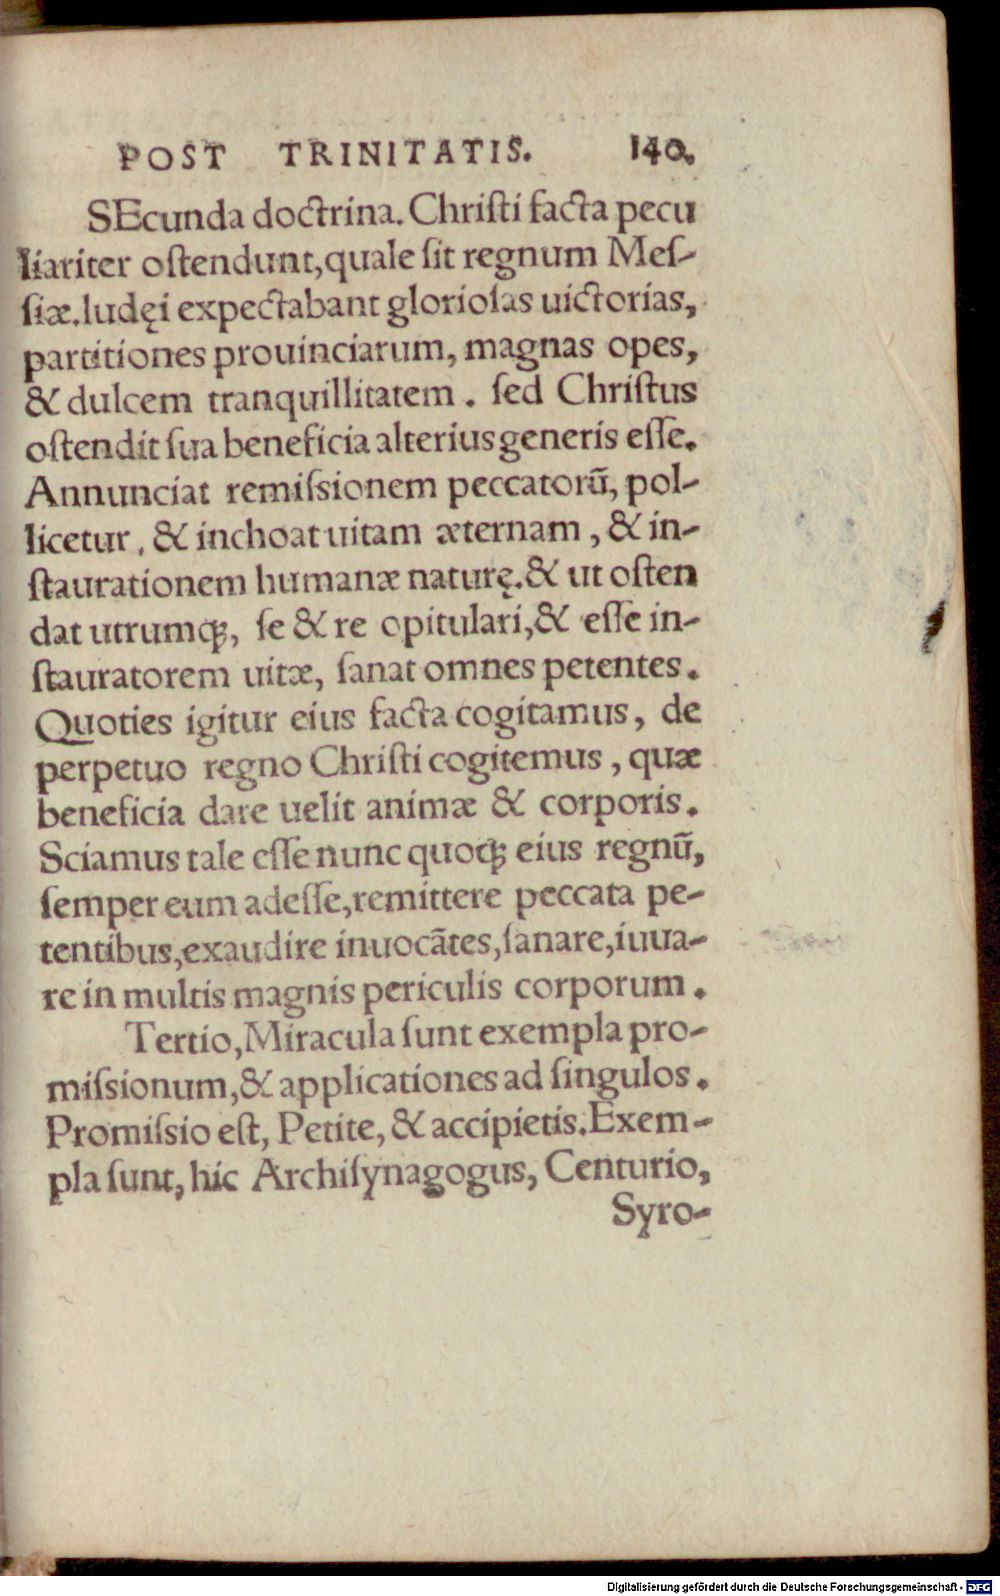 POST TRINITATIS. 140.
SEcunda doctrina. Chriſti facta pecu
liariter oſtendunt, quale ſit regnum Meſ-
ſiæ. Iudęi expectabant glorioſas uictorias,
partitiones prouinciarum, magnas opes,
& dulcem tranquillitatem . ſed Chriſtus
oſtendit ſua beneficia alterius generis eſſe.
Annunciat remiſsionem peccatorũ, pol-
licetur, & inchoat uitam æternam, & in-
ſtaurationem humanæ naturę. & ut oſten
dat utrumq;, ſe & re opitulari, & eſſe in-
ſtauratorem uitæ, ſanat omnes petentes.
Quoties igitur eius facta cogitamus, de
perpetuo regno Chriſti cogitemus, quæ
beneficia dare uelit animæ & corporis.
Sciamus tale eſſe nunc quoq; eius regnũ,
ſemper eum adeſſe, remittere peccata pe-
tentibus, exaudire inuocãtes, ſanare, iuua-
re in multis magnis periculis corporum.
Tertio, Miracula ſunt exempla pro-
miſsionum, & applicationes ad ſingulos.
Promiſsio eſt, Petite, & accipietis. Exem-
pla ſunt, hic Archiſynagogus, Centurio,
Syro-
Digitalisierung gefördert durch die Deutsche Forschungsgemeinschaft - DFG